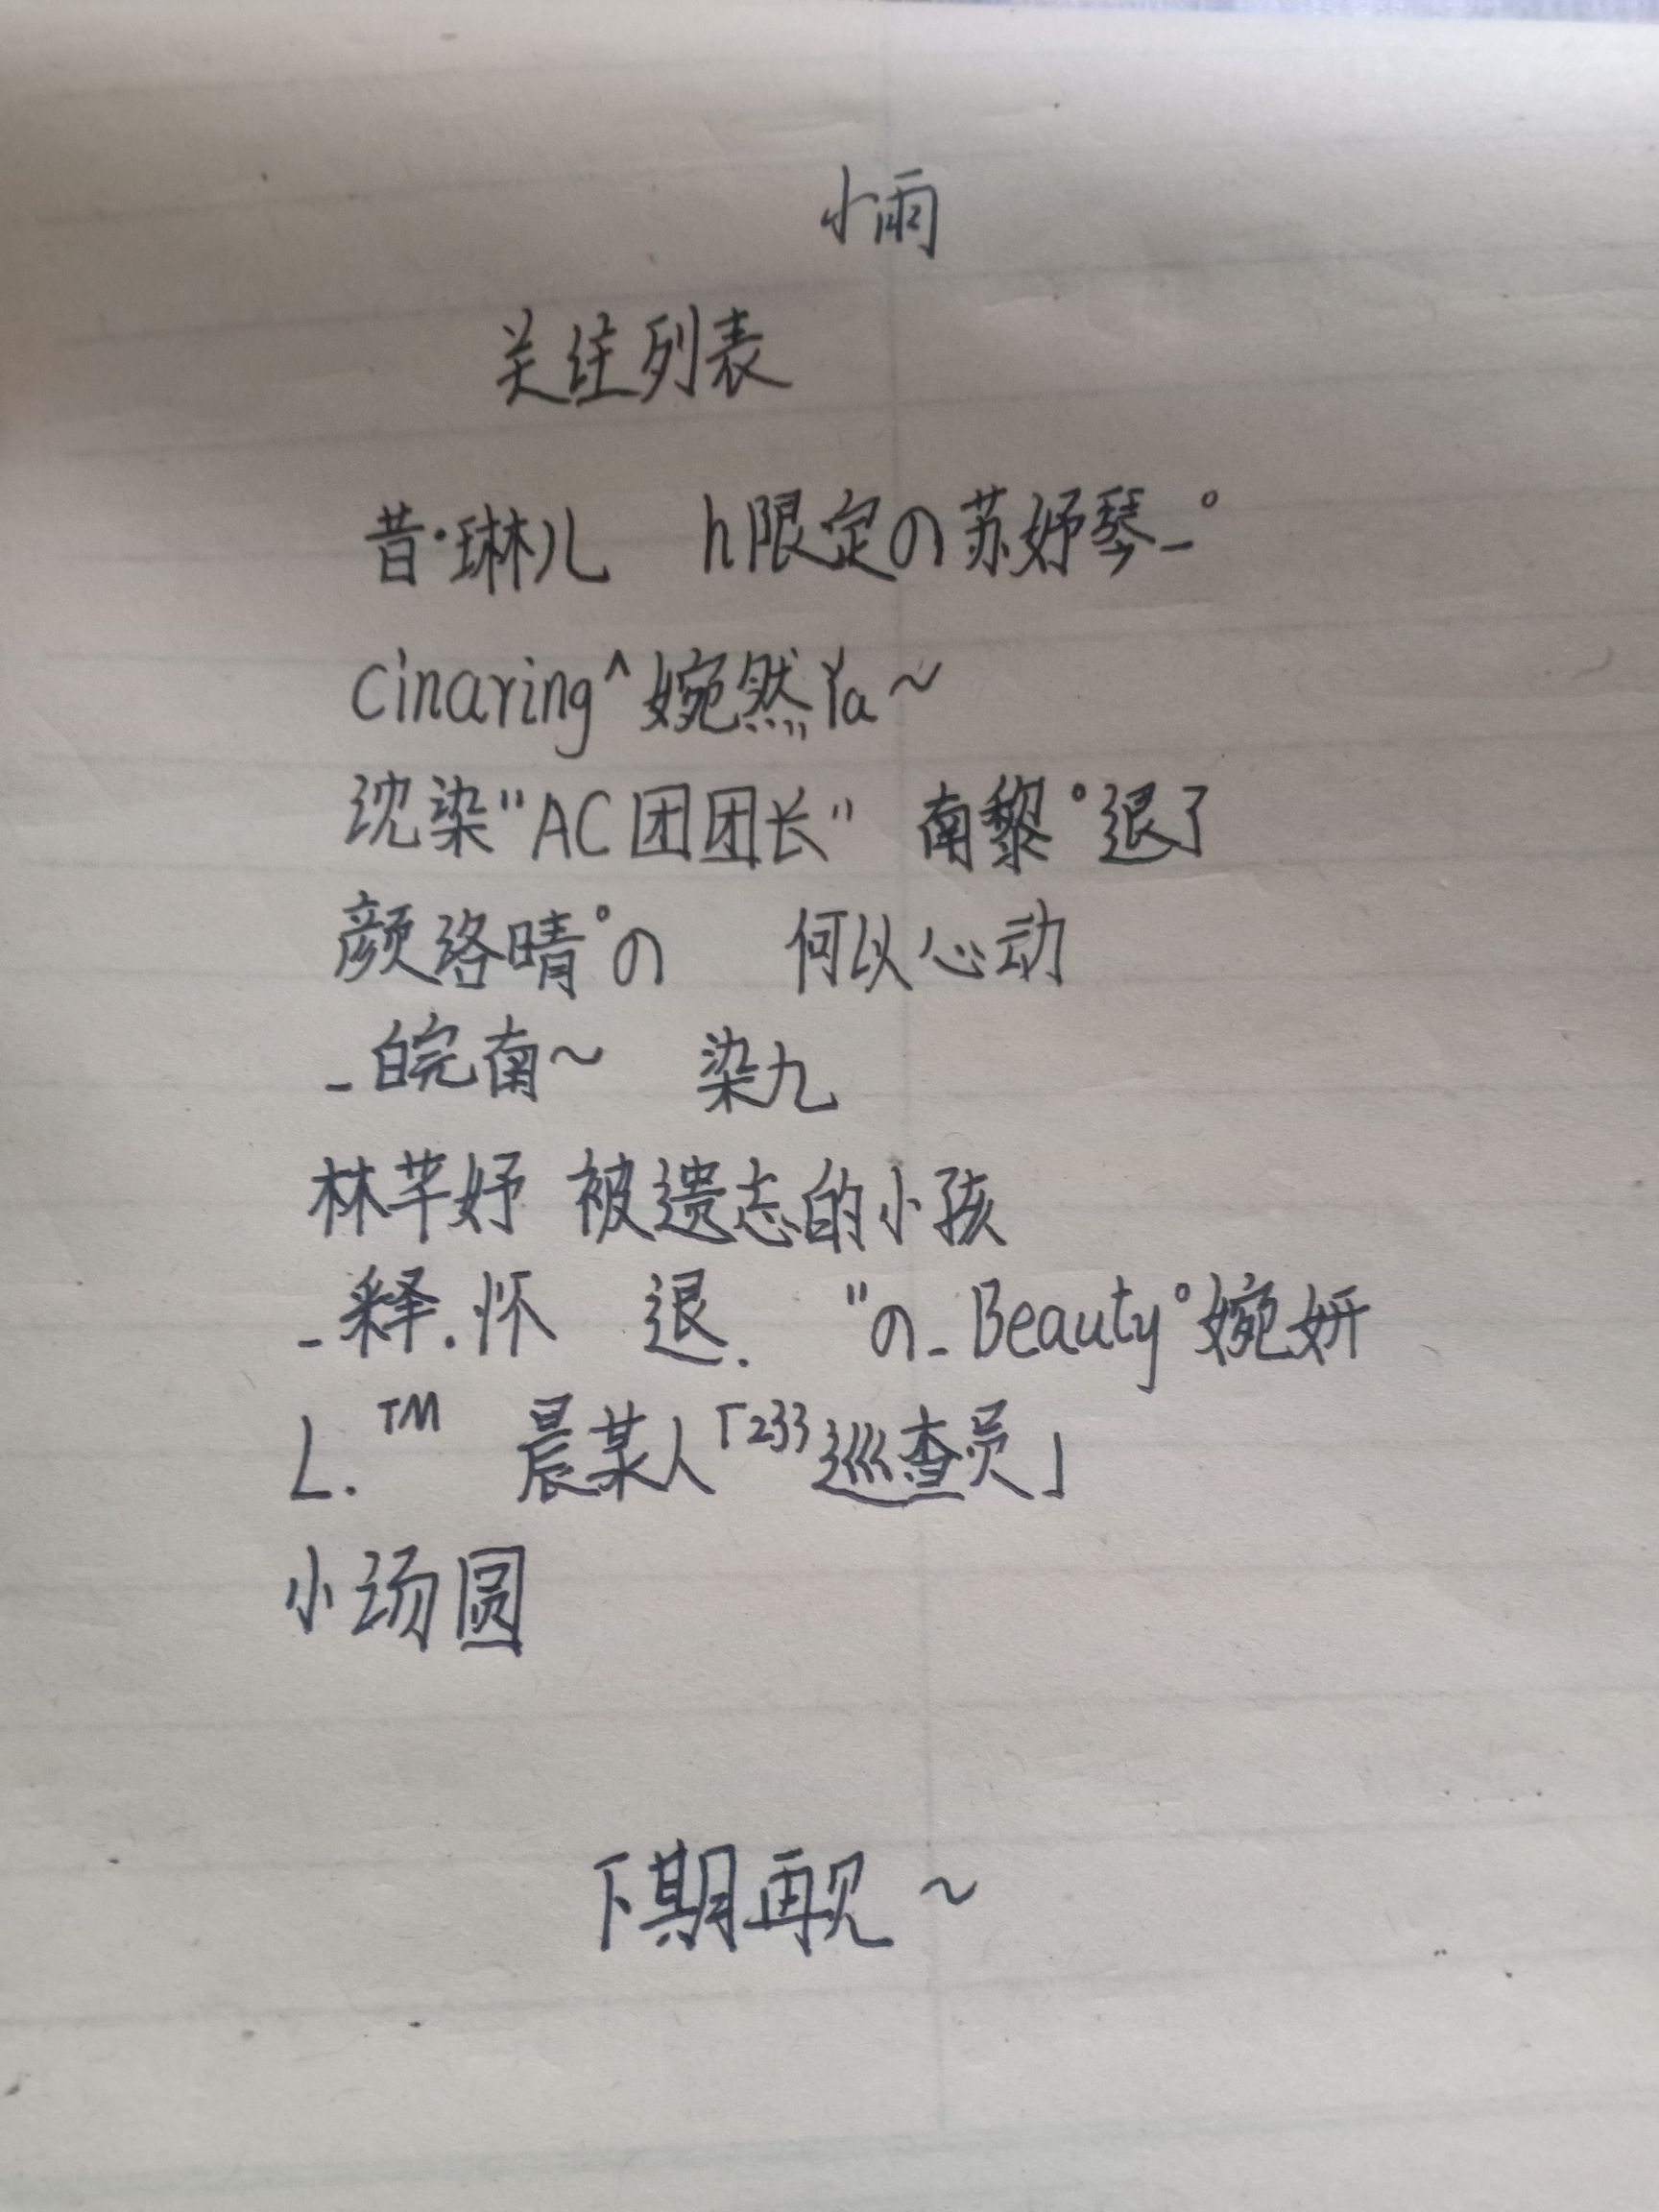 小雨
关注列表
昔·琳儿 h限定の苏妤琴_°
Cinaring^婉然Ya~
沈染"AC团团长" 南黎°退了
颜洛晴°の 何以心动
_皖南~ 染九
林芊妤 被遗忘的小孩
_释.怀 退. "の_Beauty°婉妍
L.™ 晨某人「233巡查员」
小汤圆
下期再见~